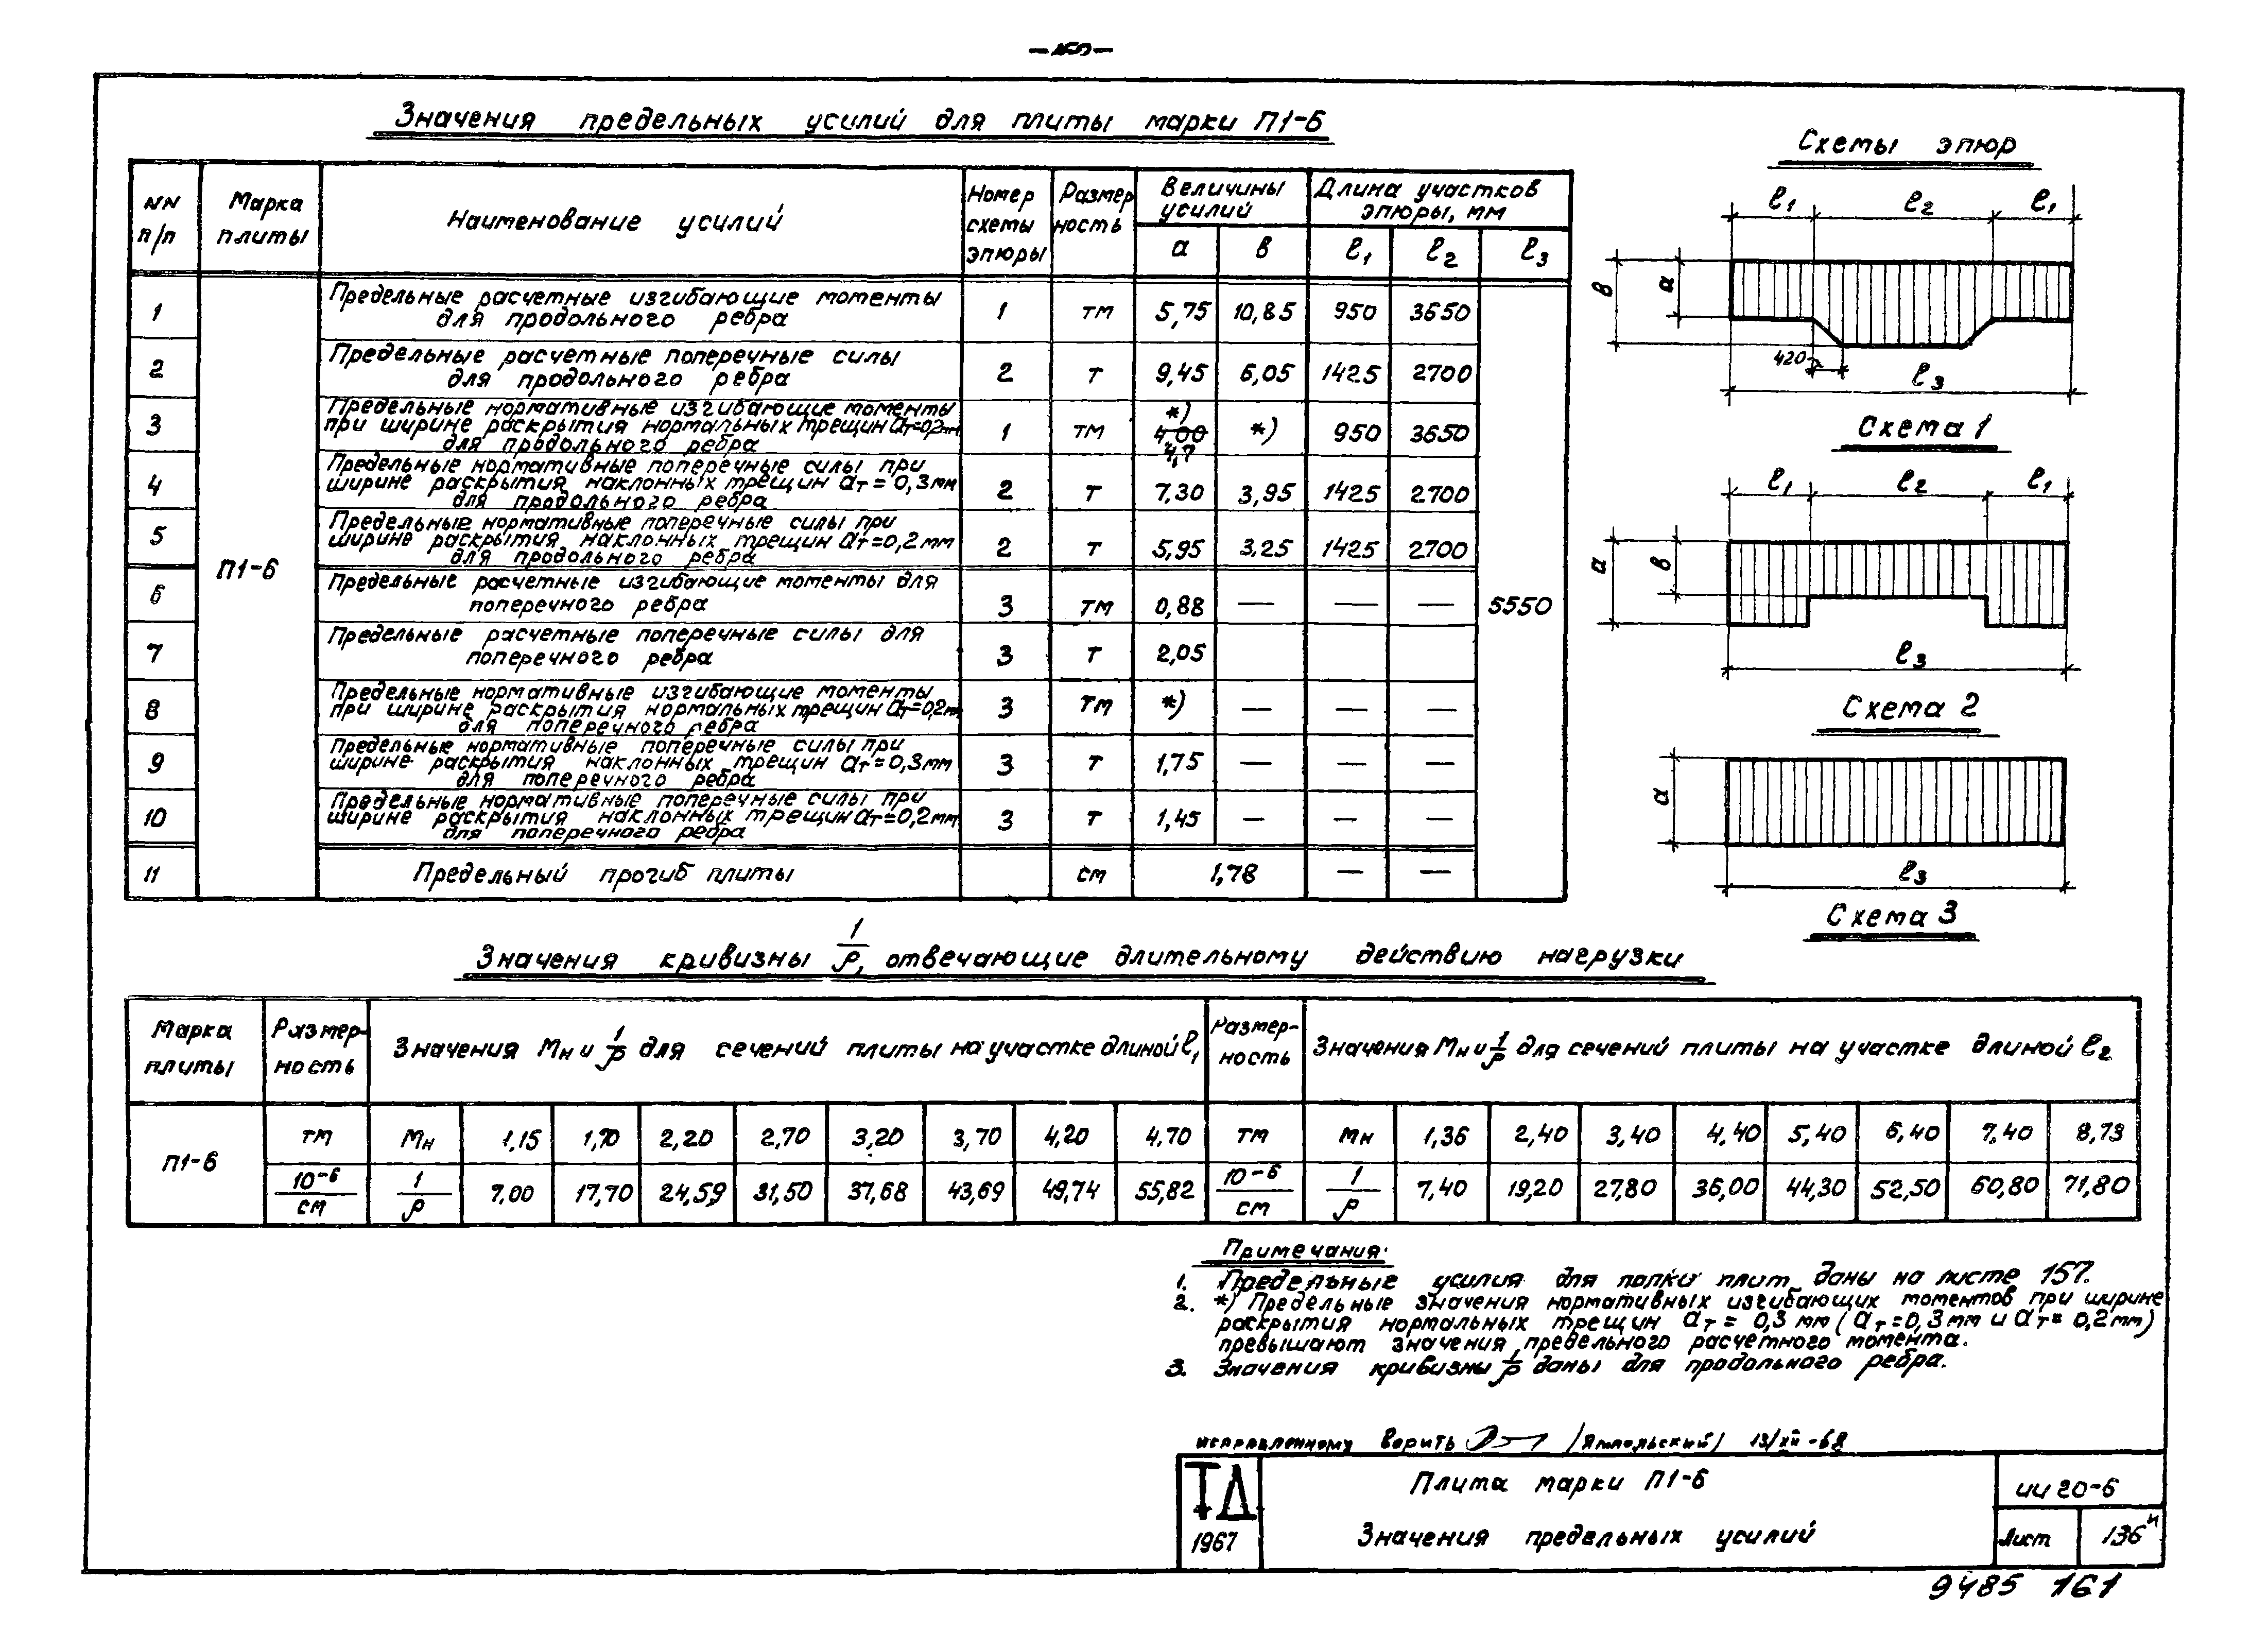 Значения предельных усилий для плиты марки П1-6
Схемы эпюр
NN п/п
Марка плиты
Наименование усилий
Номер схемы эпюры
Размерность
Величины усилий
Длина участков эпюры, мм
а в ℓ1 ℓ2 ℓ3
П1-6
5550
1 Предельные расчетные изгибающие моменты для продольного ребра 1 тм 5,75 10,85 950 3650
2 Предельные расчетные поперечные силы для продольного ребра 2 т 9,45 6,05 1425 2700
3 Предельные нормативные изгибающие моменты при ширине раскрытия нормальных трещин aт=0,2мм для продольного ребра 1 тм *) 4,00 4,7 *) 950 3650
4 Предельные нормативные поперечные силы при ширине раскрытия наклонных трещин aт=0,3мм для продольного ребра 2 т 7.30 3,95 1425 2700
5 Предельные нормативные поперечные силы при ширине раскрытия наклонных трещин aт=0,2мм для продольного ребра 2 т 5,95 3,25 1425 2700
6 Предельные расчетные изгибающие моменты для поперечного ребра 3 тм 0,88 — — —
7 Предельные расчетные поперечные силы для поперечного ребра 3 т 2,05
8 Предельные нормативные изгибающие моменты при ширине раскрытия нормальных трещин aт=0,2м для поперечного ребра 3 тм *) — — —
9 Предельные нормативные поперечные силы при ширине раскрытия наклонных трещин aт=0,3мм для поперечного ребра 3 т 1,75 — — —
10 Предельные нормативные поперечные силы при ширине раскрытия наклонных трещин aт=0,2мм для поперечного ребра 3 т 1,45 — — —
11 Предельный прогиб плиты см 1,78 — —
ℓ1 ℓ2 ℓ1
в а
420
ℓ3
Схема 1
ℓ1 ℓ2 ℓ1
а в
ℓ3
Схема 2
а
ℓ3
Схема 3
Значения кривизны 1/ρ, отвечающие длительному действию нагрузки
Марка плиты
Размер-ность
Значения Mн и 1/ρ для сечений плиты на участке длиной ℓ1
Размер-ность
Значения Mн и 1/ρ для сечений плиты на участке длиной ℓ2
П1-6
тм Mн 1,15 1,70 2,20 2,70 3,20 3,70 4,20 4,70 тм Mн 1,36 2,40 3,40 4,40 5,40 6,40 7,40 8,73
10-6/см 1/ρ 7,00 17,70 24,59 31,50 37,68 43,69 49,74 55,82 10-6/см 1/ρ 7,40 19,20 27,80 36,00 44,30 52,50 60,80 71,80
Примечания:
1. Предельные усилия для полки плит даны на листе 157.
2. *) Предельные значения нормативных изгибающих моментов при ширине
раскрытия нормальных трещин aт = 0,3 мм (aт=0,3мм и aт= 0,2мм)
превышают значения предельного расчетного момента.
3. Значения кривизны 1/ρ даны для продольного ребра.
исправленному верить /Ямпольский/ 13/XII-68
ТД
1967
Плита марки П1-6
Значения предельных усилий
ИИ 20-6
Лист 136и
9485 161